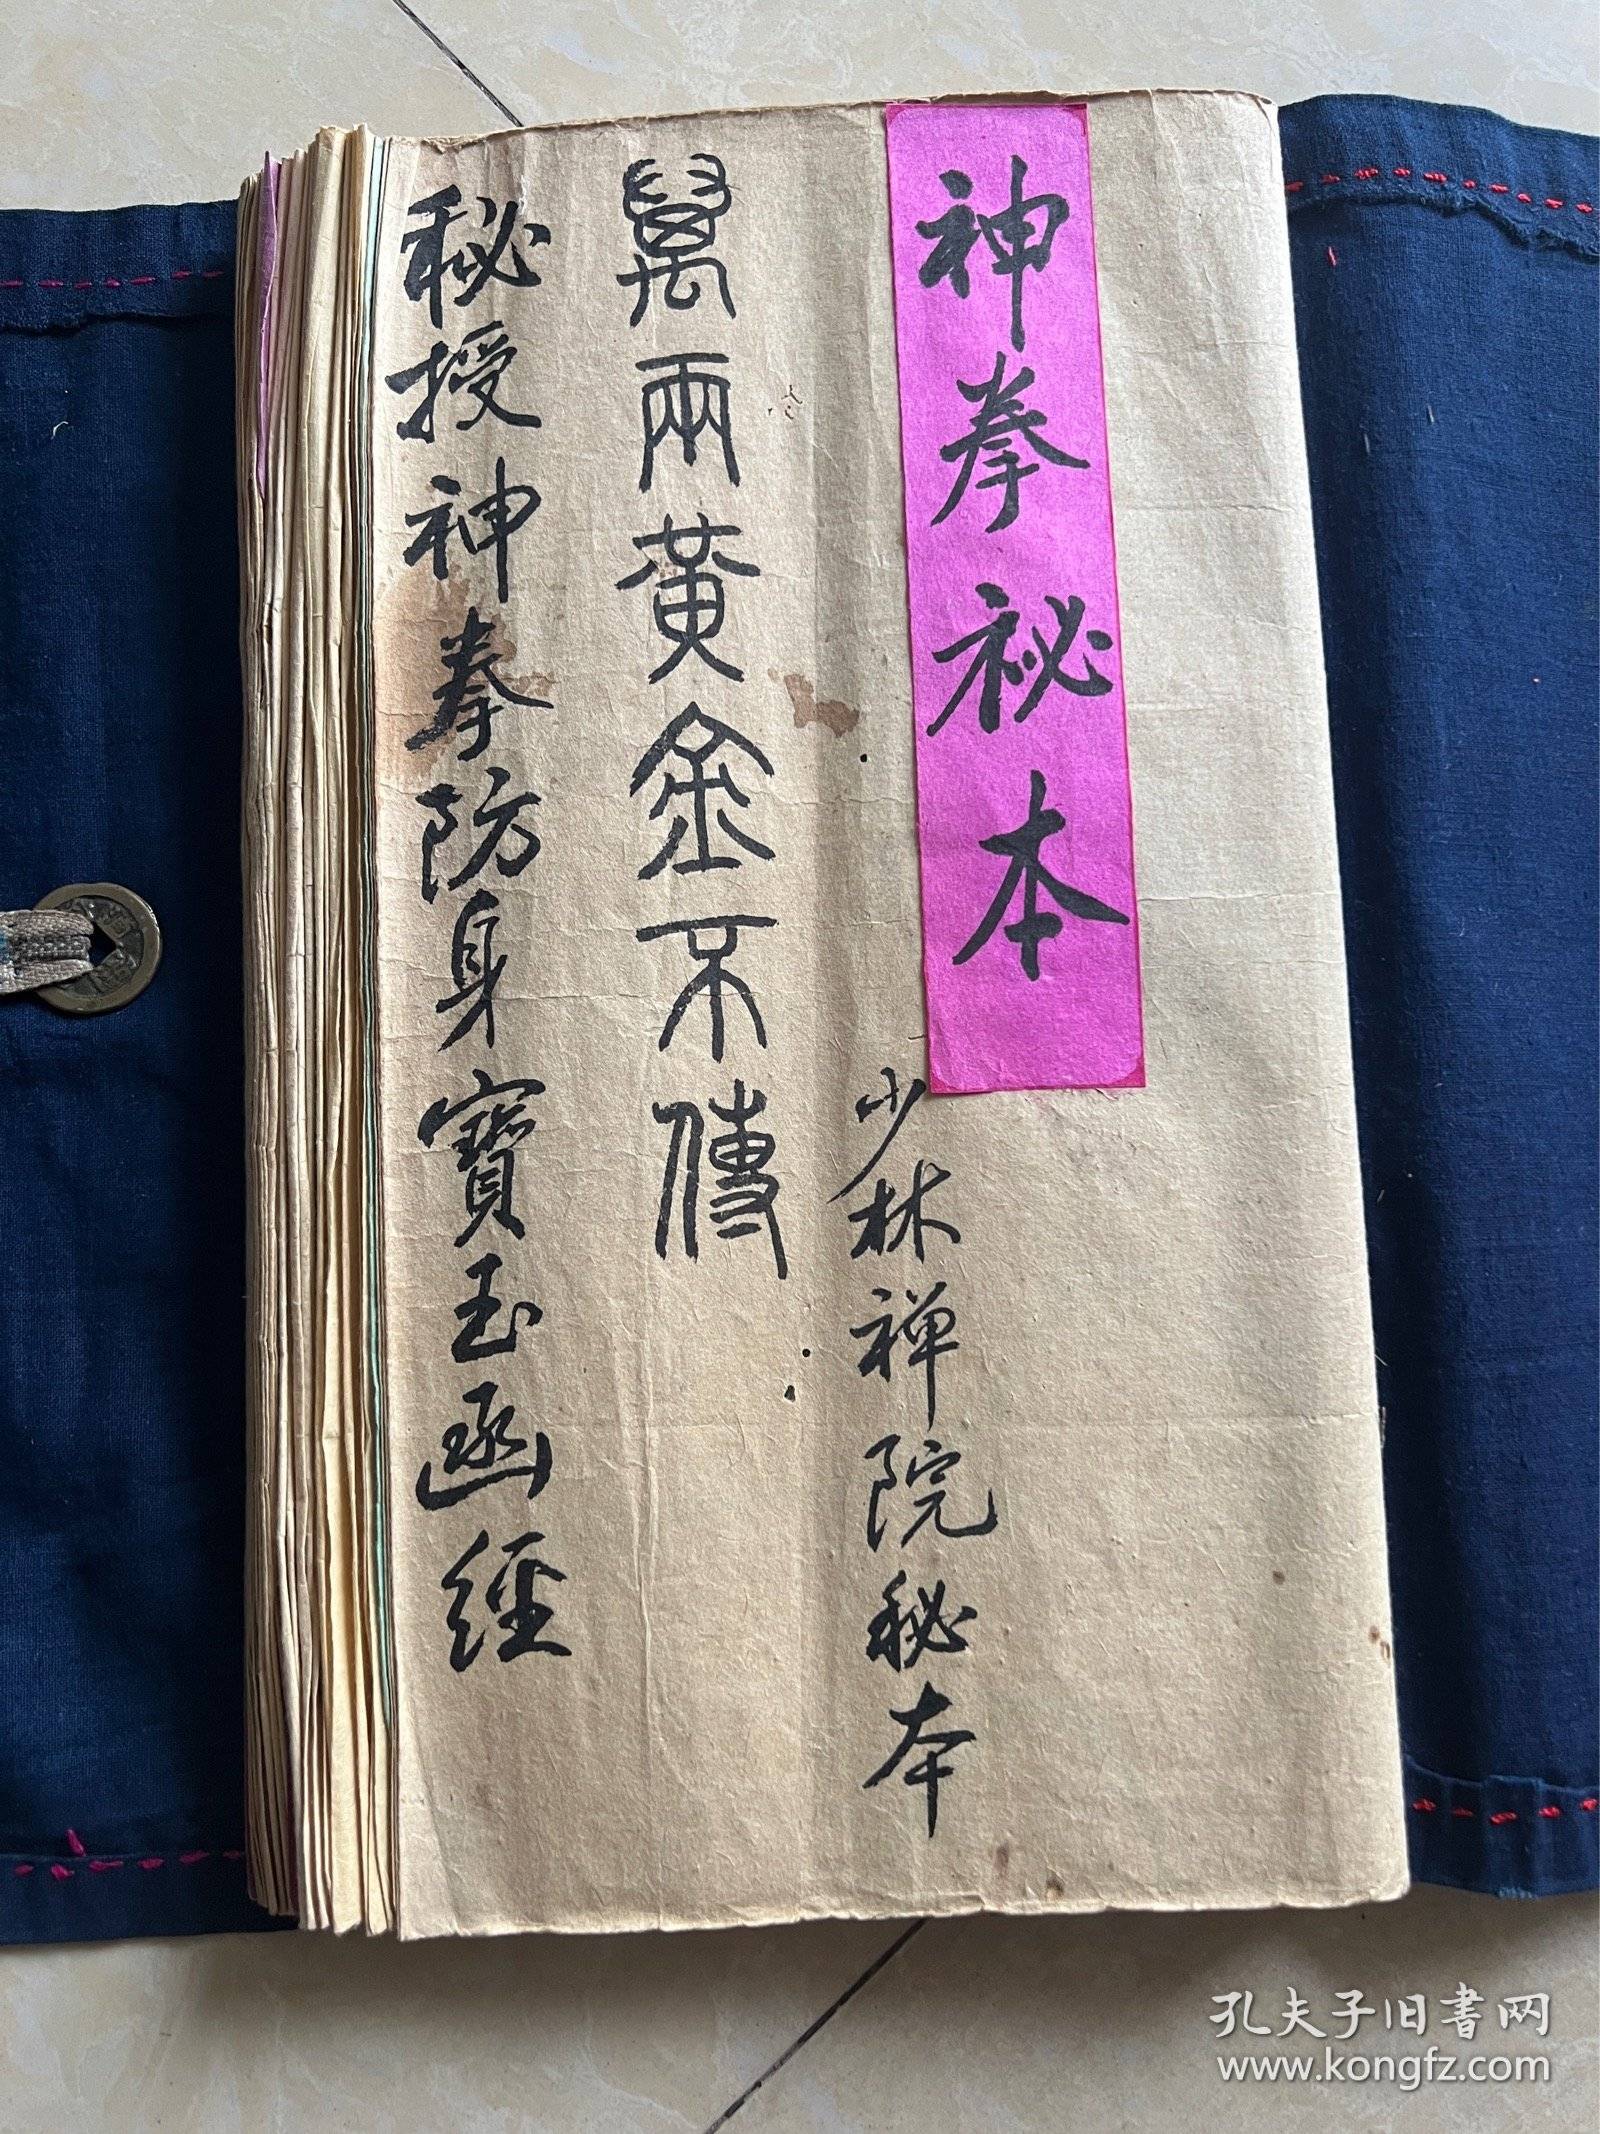 神拳祕本
少林禅院秘本
萬兩黃金不傳
秘授神拳防身寶玉函經
孔夫子旧书网
www.kongfz.com